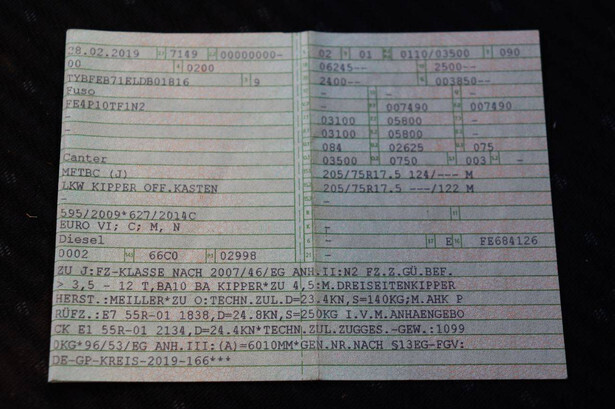 28.02.2019 7149 00000000-
00 0200
TYBFEB71ELDB01816 9
Fuso
FE4P10TF1N2
-
-
-
Canter
MFTBC (J)
LKW KIPPER OFF.KASTEN
-
595/2009*627/2014C
EURO VI; C; M, N
Diesel
0002 66C0 02998
02 01 0110/03500 090
06245-- 2500--
2400-- 003850--
- -
- 007490 007490
03100 05800 -
03100 05800 -
084 02625 075
03500 0750 003 -
205/75R17.5 124/--- M
205/75R17.5 ---/122 M
-
-
-
- E FE684126
ZU J:FZ-KLASSE NACH 2007/46/EG ANH.II:N2 FZ.Z.GÜ.BEF.
> 3,5 - 12 T,BA10 BA KIPPER*ZU 4,5:M.DREISEITENKIPPER
HERST.:MEILLER*ZU O:TECHN.ZUL.D=23.4KN,S=140KG;M.AHK P
RÜFZ.:E7 55R-01 1838,D=24.8KN,S=250KG I.V.M.ANHAENGEBO
CK E1 55R-01 2134,D=24.4KN*TECHN.ZUL.ZUGGES.-GEW.:1099
0KG*96/53/EG ANH.III:(A)=6010MM*GEN.NR.NACH §13EG-FGV:
DE-GP-KREIS-2019-166***